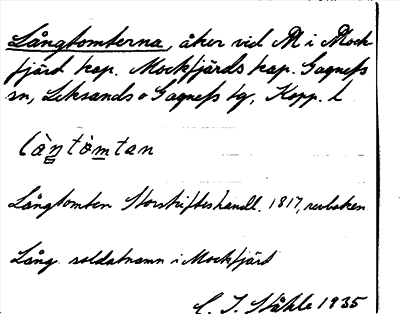 Långtomterna, åker vid M i Mock-
fjärd kap. Mockfjärds kap. Gagnefs
sn, Leksands o Gagnefs tg, Kopp. l.
làŋtòmtan
Långtomten Storskifteshandl. 1817, revboken
Lång soldatnamn i Mockfjärd
C. I. Ståhle 1935